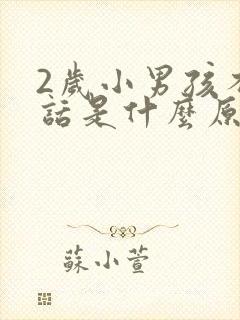 2歲小男孩不
話是什麼原
蘇小萱